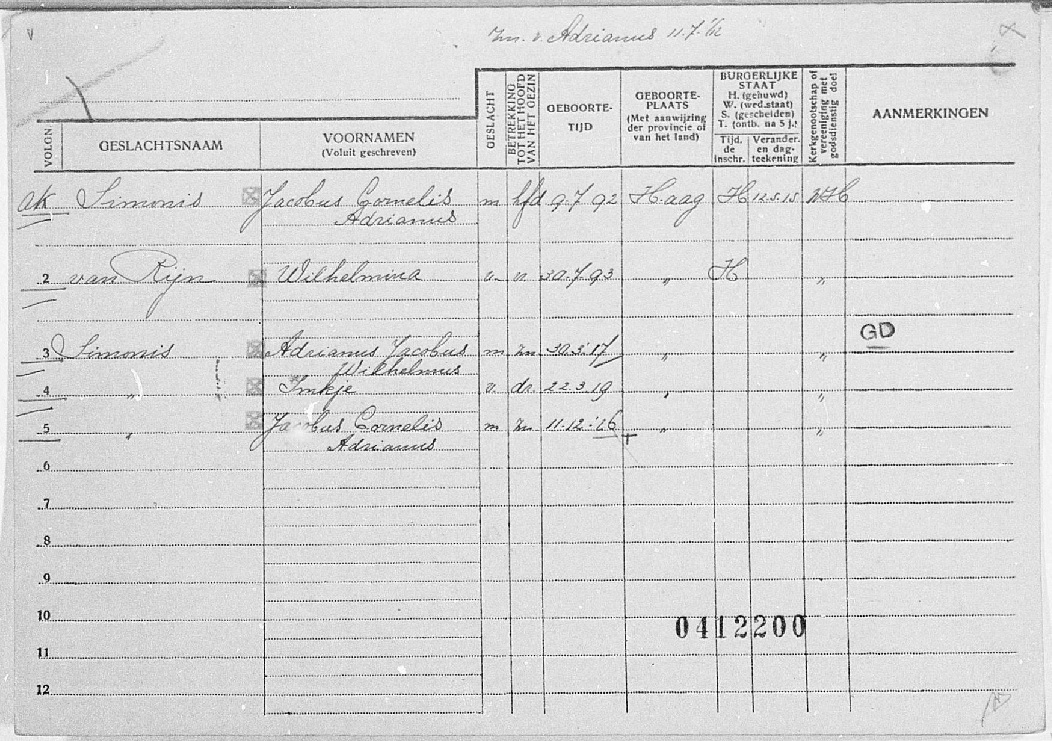 v
zn. v. Adrianus 11.7.'62
VOLGN.
GESLACHTSNAAM
VOORNAMEN
(Voluit geschreven)
GESLACHT
BETREKKING TOT HET HOOFD VAN HET GEZIN
GEBOORTE-
TIJD
GEBOORTE-
PLAATS
(Met aanwijzing
der provincie of
van het land)
BURGERLIJKE
STAAT
H. (gehuwd)
W. (wed.staat)
S. (gescheiden)
T. (ontb. na 5 j.)
Tijd.
de
inschr.
Verander.
en dag-
teekening
Kerkgenootschap of vereeniging met godsdienstig doel
AANMERKINGEN
ak Simonis Jacobus Cornelis m hfd 9.7.92 Haag H 12.5.15 NH
Adrianus
2 van Rijn Wilhelmina v. v. 30.7.93 „ H „
GD
3 Simonis Adrianus Jacobus m zn 30.3.'17 „ „
Wilhelmus
4 „ Imkje v. dr. 22.3.19 „ „
5 „ Jacobus Cornelis m zn 11.12.'26 „ „
Adrianus
6
7
8
9
10
0412200
11
12